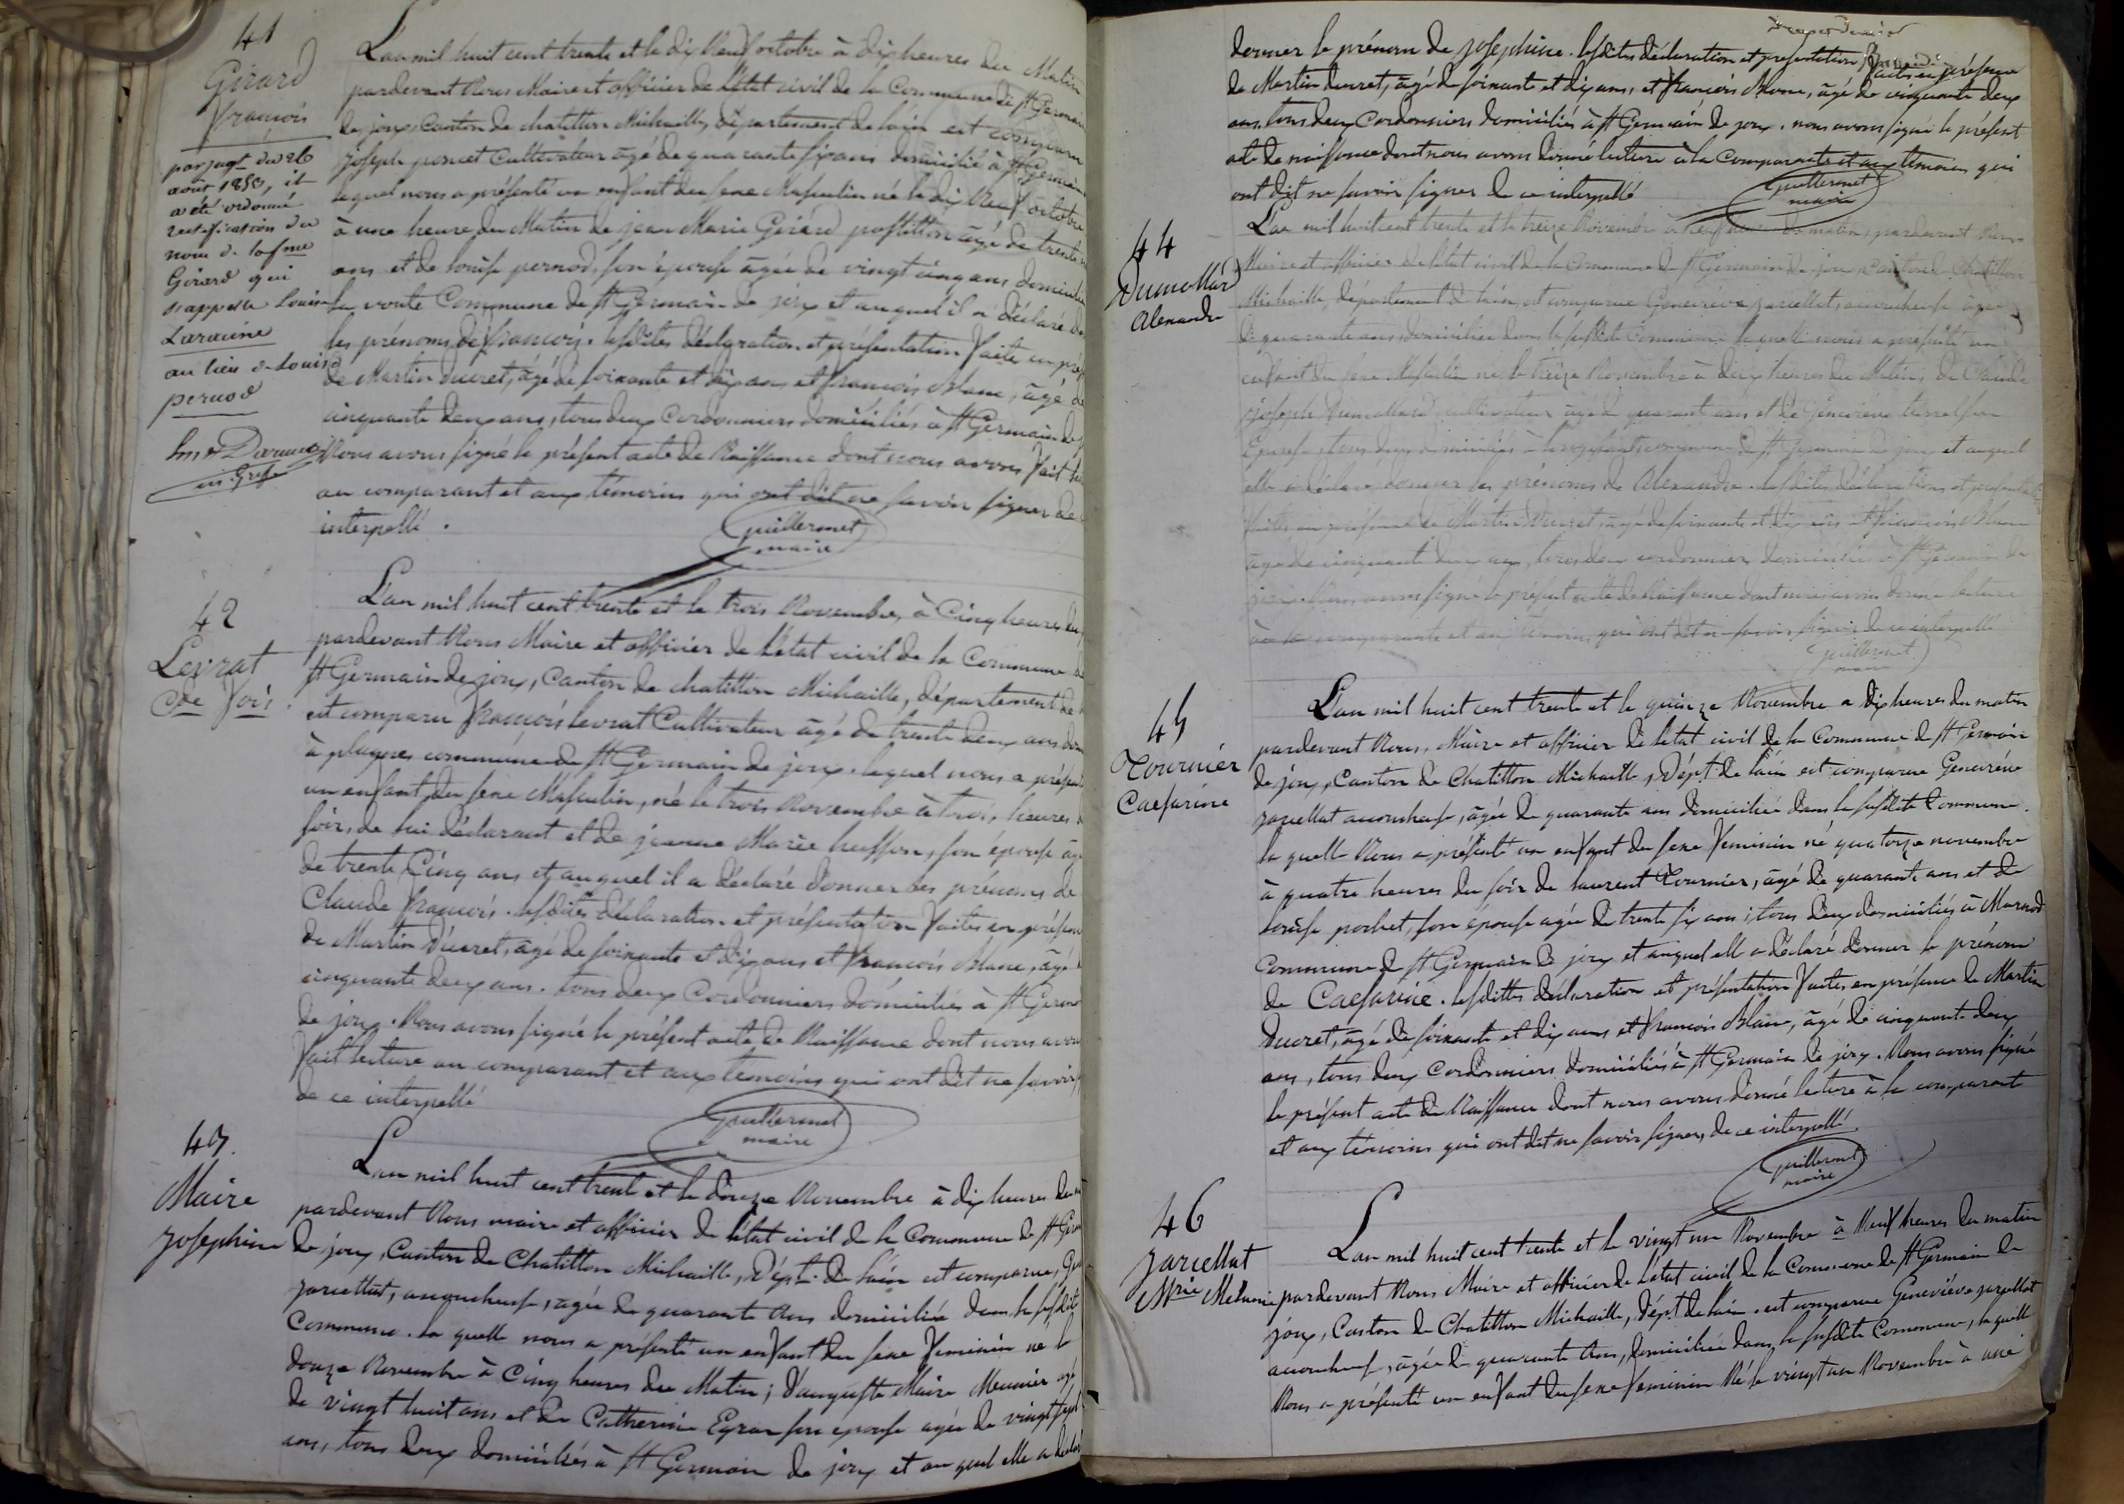 41
Girard
François
par jugt du 26
août 1850, il
a été ordonné
rectification du
nom de la fme
Girard qui
s'appelle Louise
Larraine
au lieu de Louise
pernod
L'an mil huit cent trente et le dix Neuf octobre à dix heures du Matin
pardevant Nous Maire et officier de l'état civil de la Commune de st Germain
de joux, Canton de chatillon Michaille, département de l'ain est comparu
joseph poncet Cultivateur âgé de quarante six ans domicilié à st Germain
lequel nous a présenté un enfant du sexe Masculin né le dix Neuf octobre
à une heure du Matin de jean Marie Girard postillon âgé de trente
ans et de louise pernod, son épouse âgée de vingt cinq ans domiciliés
la voute Commune de st Germain de joux et auquel il a déclaré
les prénoms de françois. lesdites déclaration et présentation faites en
de Martin ducret, âgé de soixante et dix ans et françois Blanc, âgé de
cinquante deux ans, tous deux Cordonniers domiciliés à st Germain de
Nous avons signé le présent acte de Naissance dont nous avons fait
au comparant et aux témoins qui ont dit ne savoir signer de
interpellé.
Guillermet
maire
42
Levrat
Cde fois
L'an mil huit cent trente et le trois Novembre, à Cinq heures du
pardevant Nous Maire et officier de l'état civil de la Commune de
st Germain de joux, Canton de chatillon Michaille, département de
est comparu françois levrat Cultivateur âgé de trente deux ans
à plagnes commune de st Germain de joux. lequel nous a présenté
un enfant du sexe Masculin, né le trois Novembre à trois heures
soir, de lui déclarant et de jeanne Marie husson, son épouse
de trente Cinq ans et auquel il a déclaré donner les prénoms de
Claude françois. lesdites déclaration et présentation faites en
de Martin ducret, âgé de soixante et dix ans et françois Blanc, âgé
cinquante deux ans. tous deux Cordonniers domiciliés à st Germain
de joux. Nous avons signé le présent acte de Naissance dont nous avons
fait lecture au comparant et aux témoins qui ont dit ne savoir
de ce interpellé
Guillermet
maire
43.
Maire
josephine
L'an mil huit cent trente et le douze Novembre à dix heures du
pardevant Nous maire et officier de l'état civil de la Commune de st
de joux, Canton de Chatillon Michaille, Dépt. de l'ain est comparue,
jarcellat, accoucheuse, agée de quarante Ans domiciliée dans la susdite
Commune. la quelle nous a présenté un enfant du sexe féminin né le
douze Novembre à Cinq heures du Matin; d'auguste Maire Meunier agé
de vingt huit ans et de Catherine Egraz son épouse agée de vingt sept
ans, tous deux domiciliés à st Germain de joux et au quel elle a déclaré
donner le prénom de josephine. lesdites déclaration et présentation, faites en présence
de Martin ducret, âgé de soixante et dix ans, et françois Blanc, âgé de cinquante deux
ans. tous deux Cordonniers domiciliés à st Germain de joux. nous avons signé le présent
acte de naissance dont nous avons donné lecture à la Comparante et aux témoins qui
ont dit ne savoir signer de ce interpellé
Guillermet
maire
44
Dumollard
Alexandre
L'an mil huit cent trente et le treize Novembre à matin, pardevant Nous
Maire et officier de l'état civil de la Commune de st Germain de joux, Canton de Chatillon
Michaille, département de l'ain, est comparue Geneviève jarcellat, accoucheuse âgée
de quarante ans, domiciliée dans la susdite Commune la quelle nous a présenté un
enfant du sexe Masculin né le treize Novembre à deux heures du Matin, de Claude
joseph Dumollard, cultivateur agé de quarante ans et de Geneviève son
Epouse, tous deux domiciliés à commune de st Germain de joux et auquel
elle a déclaré donner les prénoms de Alexandre. lesdites déclaration et présentation
faites en présence de Martin Ducret, âgé de soixante et dix ans et françois Blanc
âgé de cinquante deux ans, tous deux cordonniers domiciliés à st Germain de
joux. Nous avons signé le présent acte de Naissance dont nous avons donné lecture
à la comparante et aux témoins qui ont dit ne savoir signer de ce interpellé
Guillermet
maire
45
Tournier
Caesarine
L'an mil huit cent trente et le quinze Novembre a dix heures du matin
pardevant Nous, Maire et officier de l'état civil de la Commune de st Germain
de joux, Canton de Chatillon Michaille, Dépt. de l'ain est comparue Geneviève
jarcellat accoucheuse, âgée de quarante ans domiciliée dans la susdite Commune.
la quelle Nous a présenté un enfant du sexe féminin né quatorze novembre
à quatre heures du soir de laurent Tournier, âgé de quarante ans et de
louise pochet, son épouse agée de trente six ans; tous deux domiciliés à Marnod
Commune de st Germain de joux et auquel elle a déclaré donner le prénom
de Caesarine. lesdittes déclaration et présentation faites en présence de Martin
Ducret, âgé de soixante et dix ans et françois Blanc, âgé de cinquante deux
ans, tous deux Cordonniers domiciliés à st Germain de joux. Nous avons signé
le présent acte de Naissance dont nous avons donné lecture à la comparante
et aux témoins qui ont dit ne savoir signer, de ce interpellé.
Guillermet
maire
46
jarcellat
Mrie Melanie
L'an mil huit cent trente et le vingt un Novembre à Neuf heures du matin
pardevant Nous Maire et officier de l'état civil de la Commune de st Germain de
joux, Canton de Chatillon Michaille, Dépt. de l'ain. est comparue Geneviève jarcellat
accoucheuse, âgée de quarante Ans, domiciliée dans la susdite Commune, la quelle
Nous a présenté un enfant du sexe féminin Né le vingt un Novembre à une